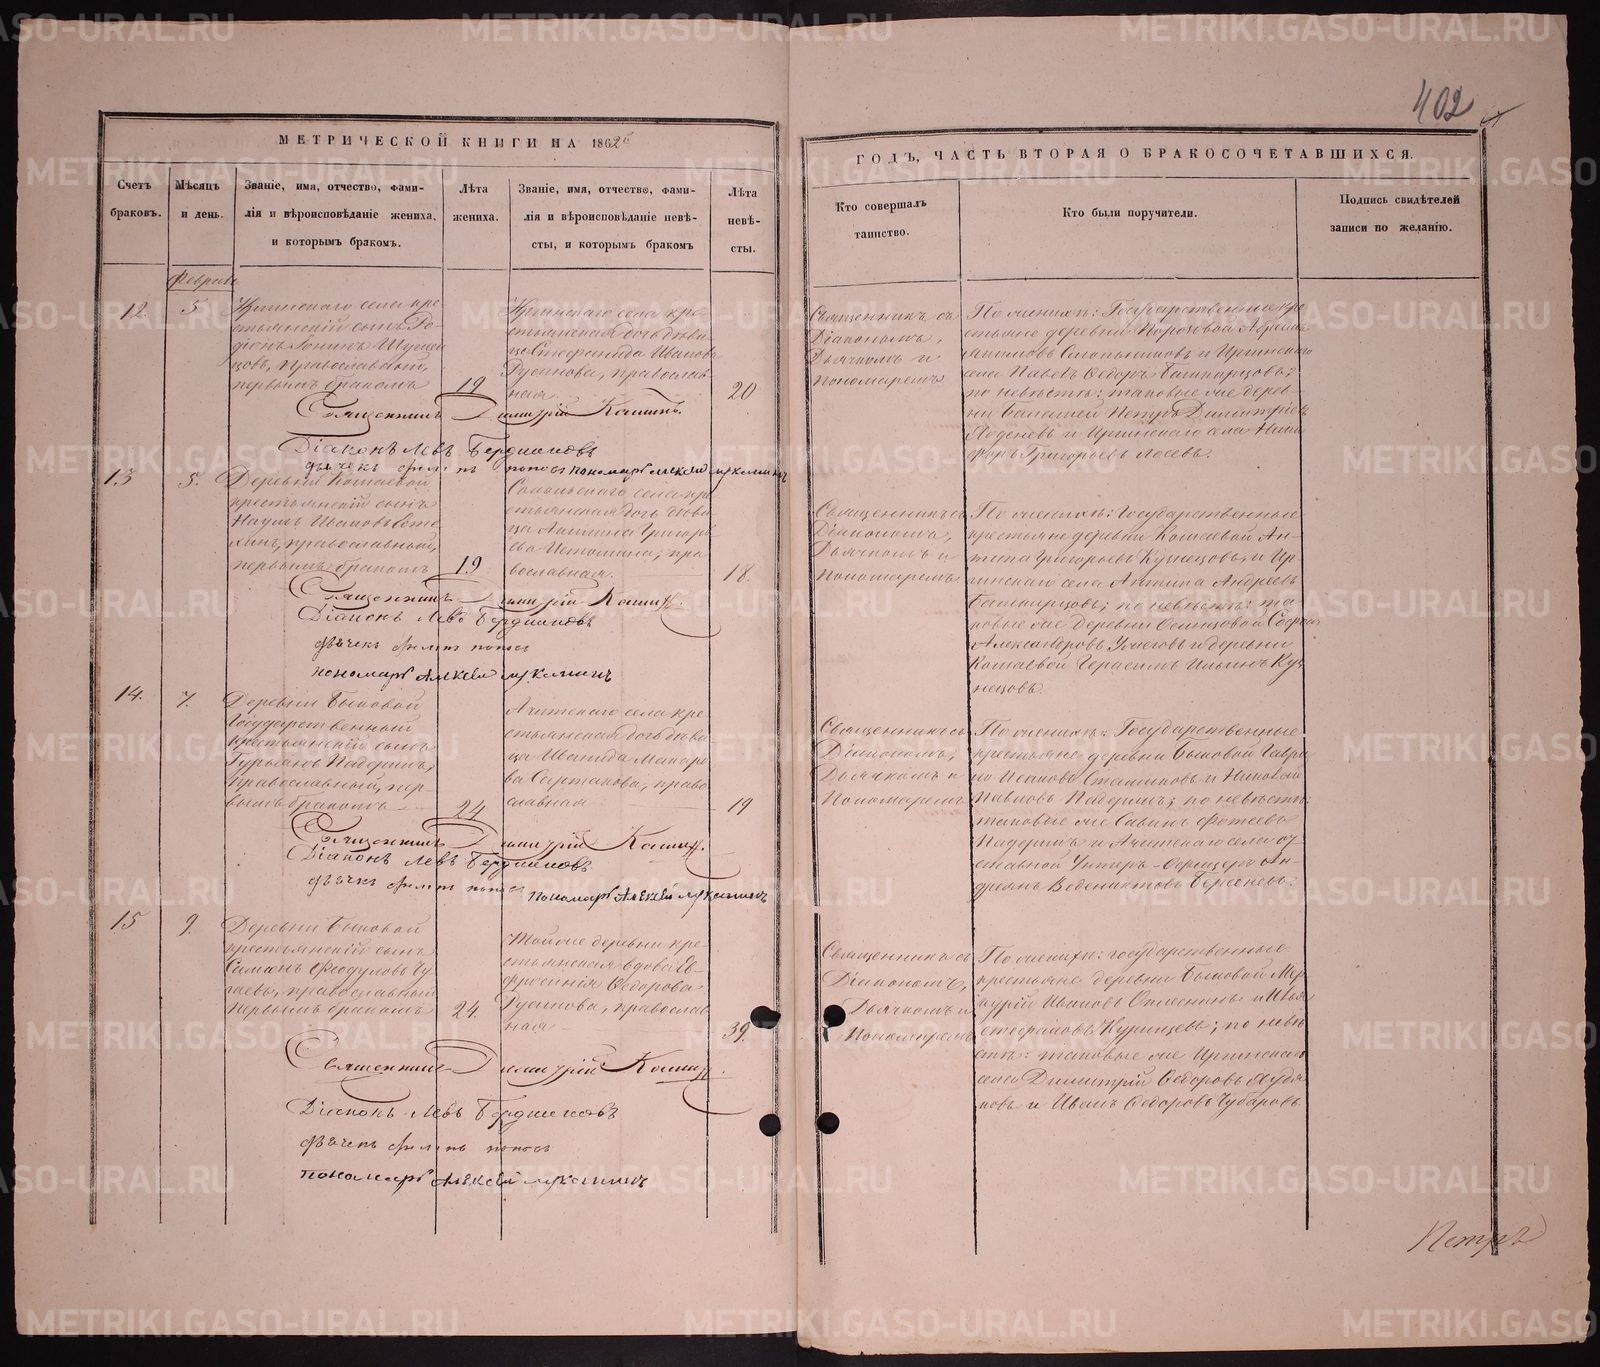 402
МЕТРИЧЕСКОЙ КНИГИ НА 1862й
ГОДЪ, ЧАСТЬ ВТОРАЯ О БРАКОСОЧЕТАВШИХСЯ.
Счетъ браковъ.
Мѣсяцъ и день.
Званіе, имя, отчество, фами-
лія и вѣроисповѣданіе жениха,
и которымъ бракомъ.
Лѣта жениха.
Званіе, имя, отчество, фами-
лія и вѣроисповѣданіе невѣ-
сты, и которымъ бракомъ
Лѣта невѣ-
сты.
Кто совершалъ
таинство.
Кто были поручители.
Подпись свидѣтелей
записи по желанію.
Февраль
12.
5
Иргинскаго села кре
стьянскій сынъ Ро
діонъ
православный,
первымъ бракомъ
19
Иргинскаго села кре
стьянская дочь дѣви
ца Стефанида Иванова
Русинова, православ
ная
20
Священникъ съ
Діакономъ,
Дьячкомъ и
Пономаремъ
По женихѣ: Государственные кре
стьяне деревни Пороховой
и Иргинскаго
села Павелъ Ѳедоръ Башкирцовъ;
по невѣстѣ: таковые же дерев
ни Петръ Димитріевъ
и Иргинскаго села
Григорьевъ Лосевъ.
Священникъ Димитрій Кашинъ.
Діаконъ Левъ Бердниковъ
дьячекъ Филипъ Поповъ пономарь Алексей
13
5.
Деревни Кошаевой
крестьянскій сынъ
Наумъ Ивановъ
православный,
первымъ бракомъ
19
села кре
стьянская дочь дѣви
ца Антонина Григорь
ева Истомина, пра
вославная.
18.
Священникъ съ
Діакономъ,
Дьячкомъ и
Пономаремъ
По женихѣ: Государственные
крестьяне деревни Кошаевой Ан
типа Григорьевъ Кузнецовъ и Ир
гинскаго села Антипа Андреевъ
Башкирцовъ; по невѣстѣ: та
ковые же деревни Осинцовой
Александровъ и деревни
Кошаевой Герасимъ Ильинъ Куз
нецовъ.
Священникъ Димитрій Кашинъ.
Діаконъ Левъ Бердниковъ
дьячекъ Филипъ Поповъ
пономарь Алексей
14.
7.
Деревни Быковой
Государственный
крестьянскій сынъ
Падеринъ,
православный, пер
вымъ бракомъ
24
Ачитскаго села кре
стьянская дочь дѣви
ца Макаро
ва Сыртакова, право
славная
19
Священникъ съ
Діакономъ,
Дьячкомъ и
Пономаремъ
По женихѣ: Государственные
крестьяне деревни Быковой Гаври
ло Ивановъ и Николай
Павловъ Падеринъ; по невѣстѣ:
таковые же Савинъ Фотеевъ
Падеринъ и Ачитскаго села от
ставной Унтеръ-Офицеръ Ан
дреянъ Береснев.
Священникъ Димитрій Кашинъ.
Діаконъ Левъ Бердниковъ
дьячекъ Филипъ Поповъ пономарь Алексей
15
9.
Деревни Быковой
крестьянскій сынъ
Симанъ Феодуловъ Чу
гаевъ, православный
Первымъ бракомъ
24.
Тойже деревни кре
стьянская вдова Ев
фросинія Ѳедорова
Русинова, православ
ная
39.
Священникъ съ
Діакономъ,
Дьячкомъ и
Пономаремъ
По женихѣ: государственные
крестьяне деревни Быковой Мер
курій Ивановъ и Илья
Стефановъ Курицевъ; по невѣ
стѣ: таковые же Иргинскаго
села Димитрій Ѳедоровъ Худя
ковъ и Иванъ Ѳедоровъ Чубаровъ.
Священникъ Димитрій Кашинъ.
Діаконъ Левъ Бердниковъ
дьячекъ Филипъ Поповъ
пономарь Алексей
Петръ
METRIKI.GASO-URAL.RU